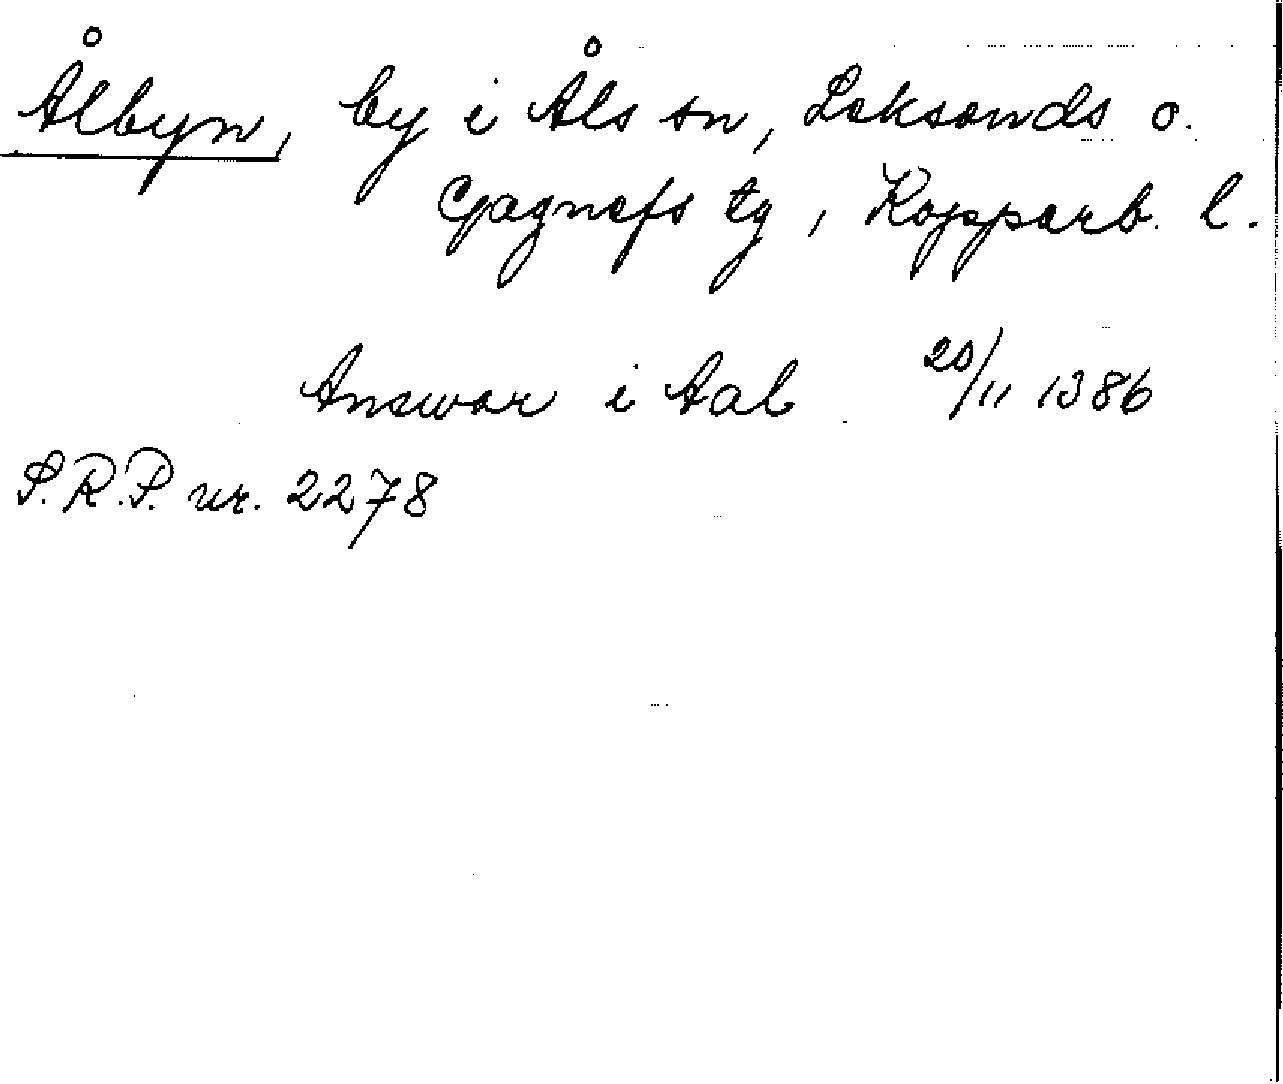 Ålbyn, by i Åls sn, Leksands o.
Gagnefs tg, Kopparb. l.
Answar i Aal 20/11 1386
S.R.P. nr. 2278